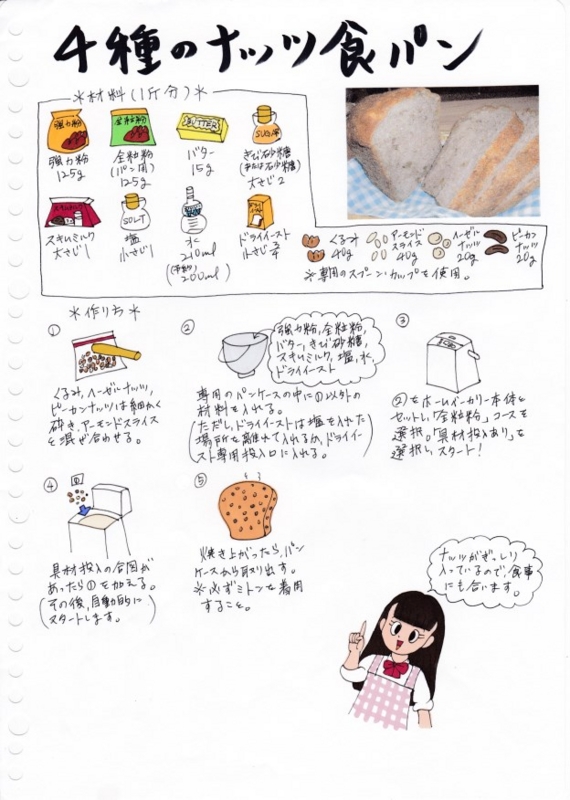 4種のナッツ食パン
*材料(1斤分)*
強力粉
全粒粉
BUTTER
SUGAR
強力粉
125g
全粒粉
(パン用)
125g
バター
15g
きび砂糖
(または砂糖)
大さじ2
SOLT
スキムミルク
大さじ1
塩
小さじ1
水
210ml
200ml
ドライイースト
小さじ
くるみ
40g
アーモンド
スライス
40g
ヘーゼル
ナッツ
20g
ピーカン
ナッツ
20g
※専用のスプーン・カップを使用。
*作り方*
①
くるみ、ヘーゼルナッツ、
ピーカンナッツは細かく
砕き、アーモンドスライス
と混ぜ合わせる。
②
強力粉、全粒粉、
バター、きび砂糖、
スキムミルク、塩、水、
ドライイースト
専用のパンケースの中に①以外の
材料を入れる。
(ただし、ドライイーストは塩を入れた
場所と離れて入れるか、ドライイー
スト専用投入口に入れる。)
③
②をホームベーカリー本体に
セットし、「全粒粉」コースを
選択。「具材投入あり」を
選択し、スタート!
④
具材投入の合図が
あったら①を加える。
(その後、自動的に
スタートします。)
⑤
焼き上がったら、パン
ケースから取り出す。
※必ずミトンを着用
すること。
ナッツがぎっしり
入っているので、食事
にも合います。